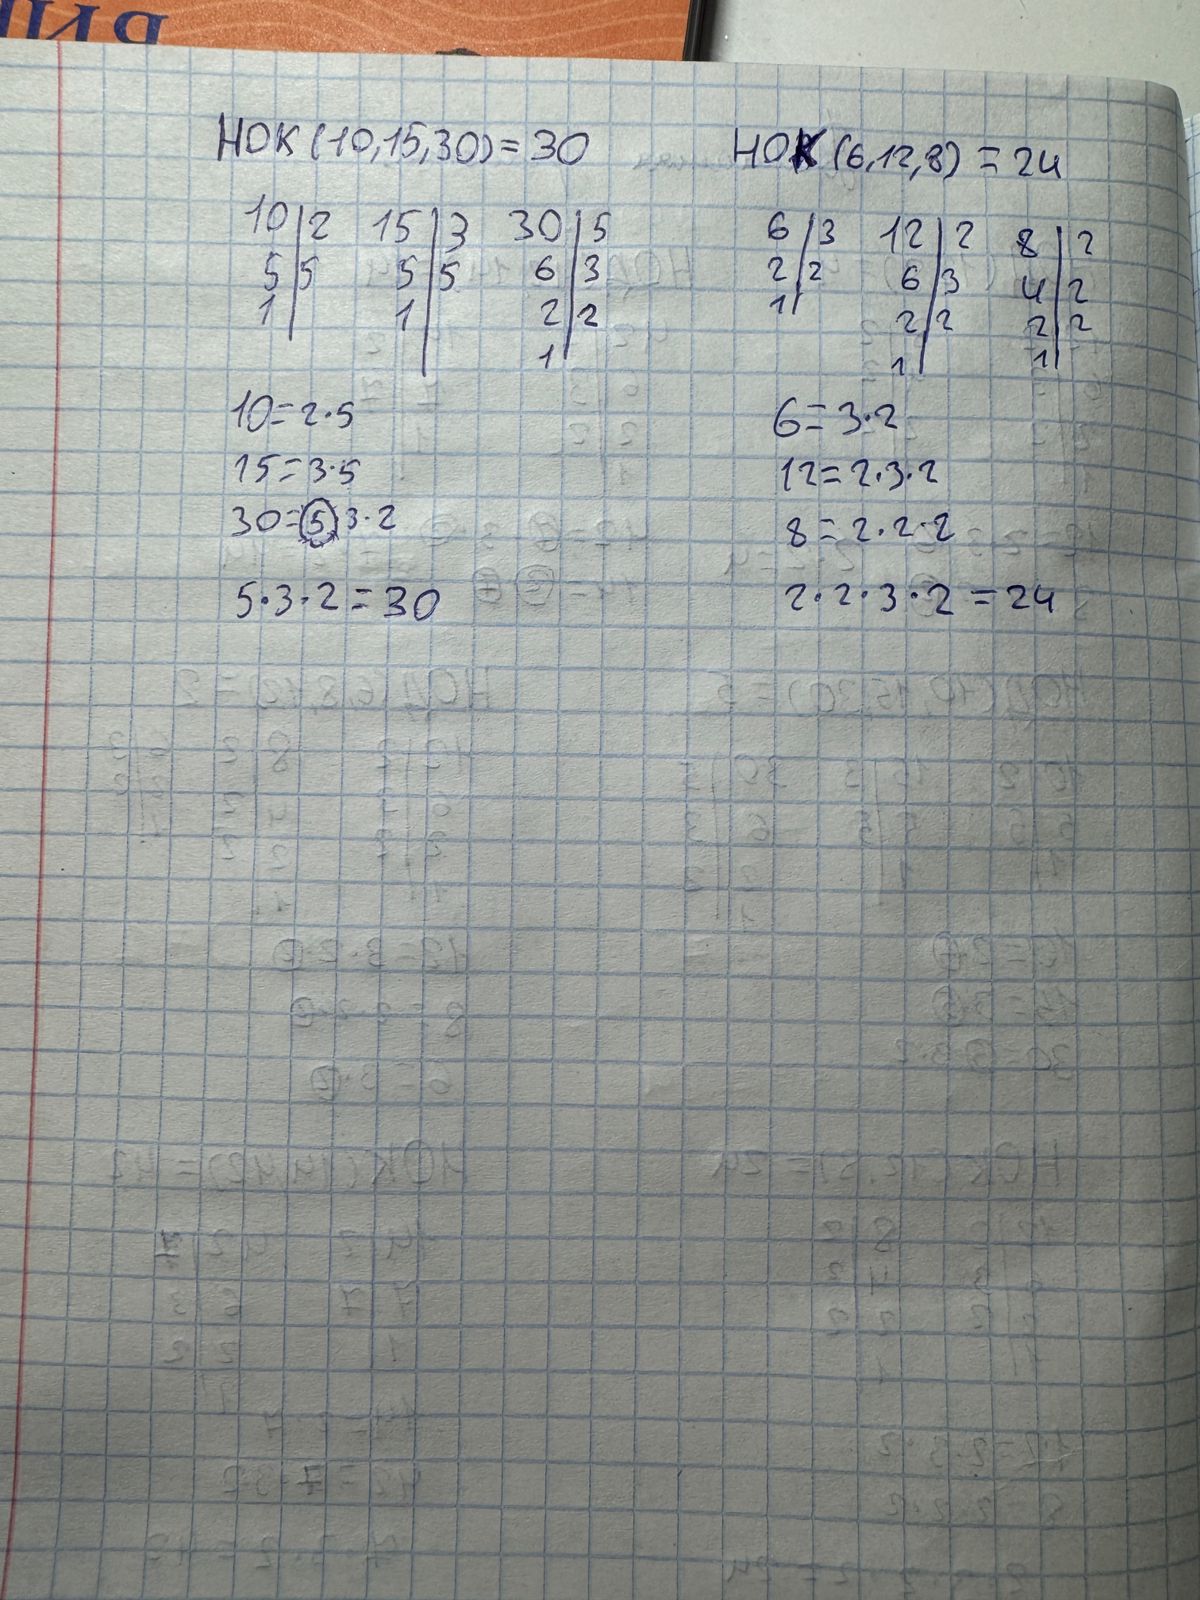 НОК (10,15,30) = 30
10 | 2 15 | 3 30 | 5
5 | 5 5 | 5 6 | 3
1 | 1 | 2 | 2
1 |
10 = 2·5
15 = 3·5
30 = 5 3·2
5·3·2 = 30
НОК (6,12,8) = 24
6 | 3 12 | 2 8 | 2
2 | 2 6 | 3 4 | 2
1 | 2 | 2 2 | 2
1 | 1 |
6 = 3·2
12 = 2·3·2
8 = 2·2·2
2·2·3·2 = 24